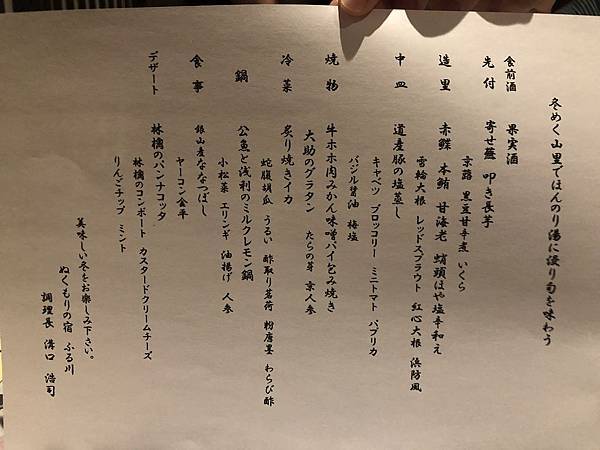 冬めく山里でほんのり湯に浸り旬を味わう
食前酒 果実酒
先付 寄せ蕪 叩き長芋
京蕗 黒豆甘辛煮 いくら
造里 赤鰈 本鮪 甘海老 蛸頭ほや塩辛和え
雪輪大根 レッドスプラウト 紅心大根 浜防風
中皿 道産豚の塩蒸し
キャベツ ブロッコリー ミニトマト パプリカ
バジル醤油 梅塩
焼物 牛ホホ肉みかん味噌パイ包み焼き
大助のグラタン たらの芽 京人参
冷菜 炙り焼きイカ
蛇腹胡瓜 うるい 酢取り茗荷 粉唐墨 わらび酢
鍋 公魚と浅利のミルクレモン鍋
小松菜 エリンギ 油揚げ 人参
食事 銀山産ななつぼし
ヤーコン金平
デザート 林檎のパンナコッタ
林檎のコンポート カスタードクリームチーズ
りんごチップ ミント
美味しい冬をお楽しみ下さい。
ぬくもりの宿 ふる川
調理長 溝口 浩司